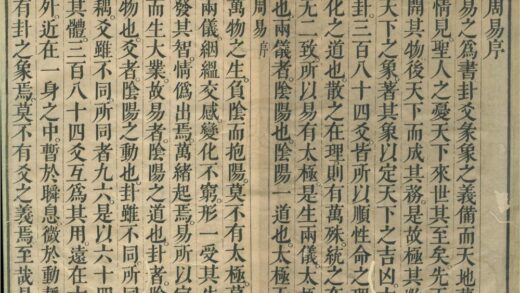 周易序
易之爲書卦爻彖象之義備而天地
情見聖人之憂天下來世其至矣先天
開其物後天下而成其務是故極其
天下之象著其象以定天下之吉凶
卦三百八十四爻皆所以順性命之理
化之道也散之在理則有萬殊統之在
无二致所以易有太極是生兩儀太
也兩儀者陰陽也陰陽一道也太極
周易序
萬物之生負陰而抱陽莫不有太極
兩儀絪緼交感變化不窮形一受其生
發其智情僞出焉萬緒起焉易所以定
而生大業故易者陰陽之道也卦者陰
物也爻者陰陽之動也卦雖不同所同
耦爻雖不同所同者九六是以六十四
其體三百八十四爻互爲其用遠在六
外近在一身之中暫於瞬息微於動
有卦之象焉莫不有爻之義焉至哉